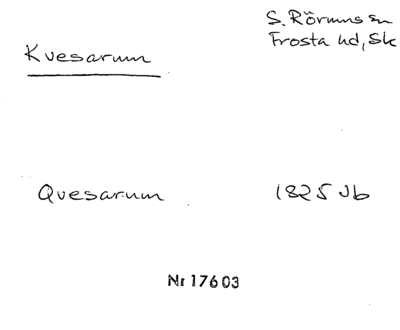 S. Rörums sn
Frosta hd, Sk
Kvesarum
Qvesarum 1825 Jb
Nr 17603